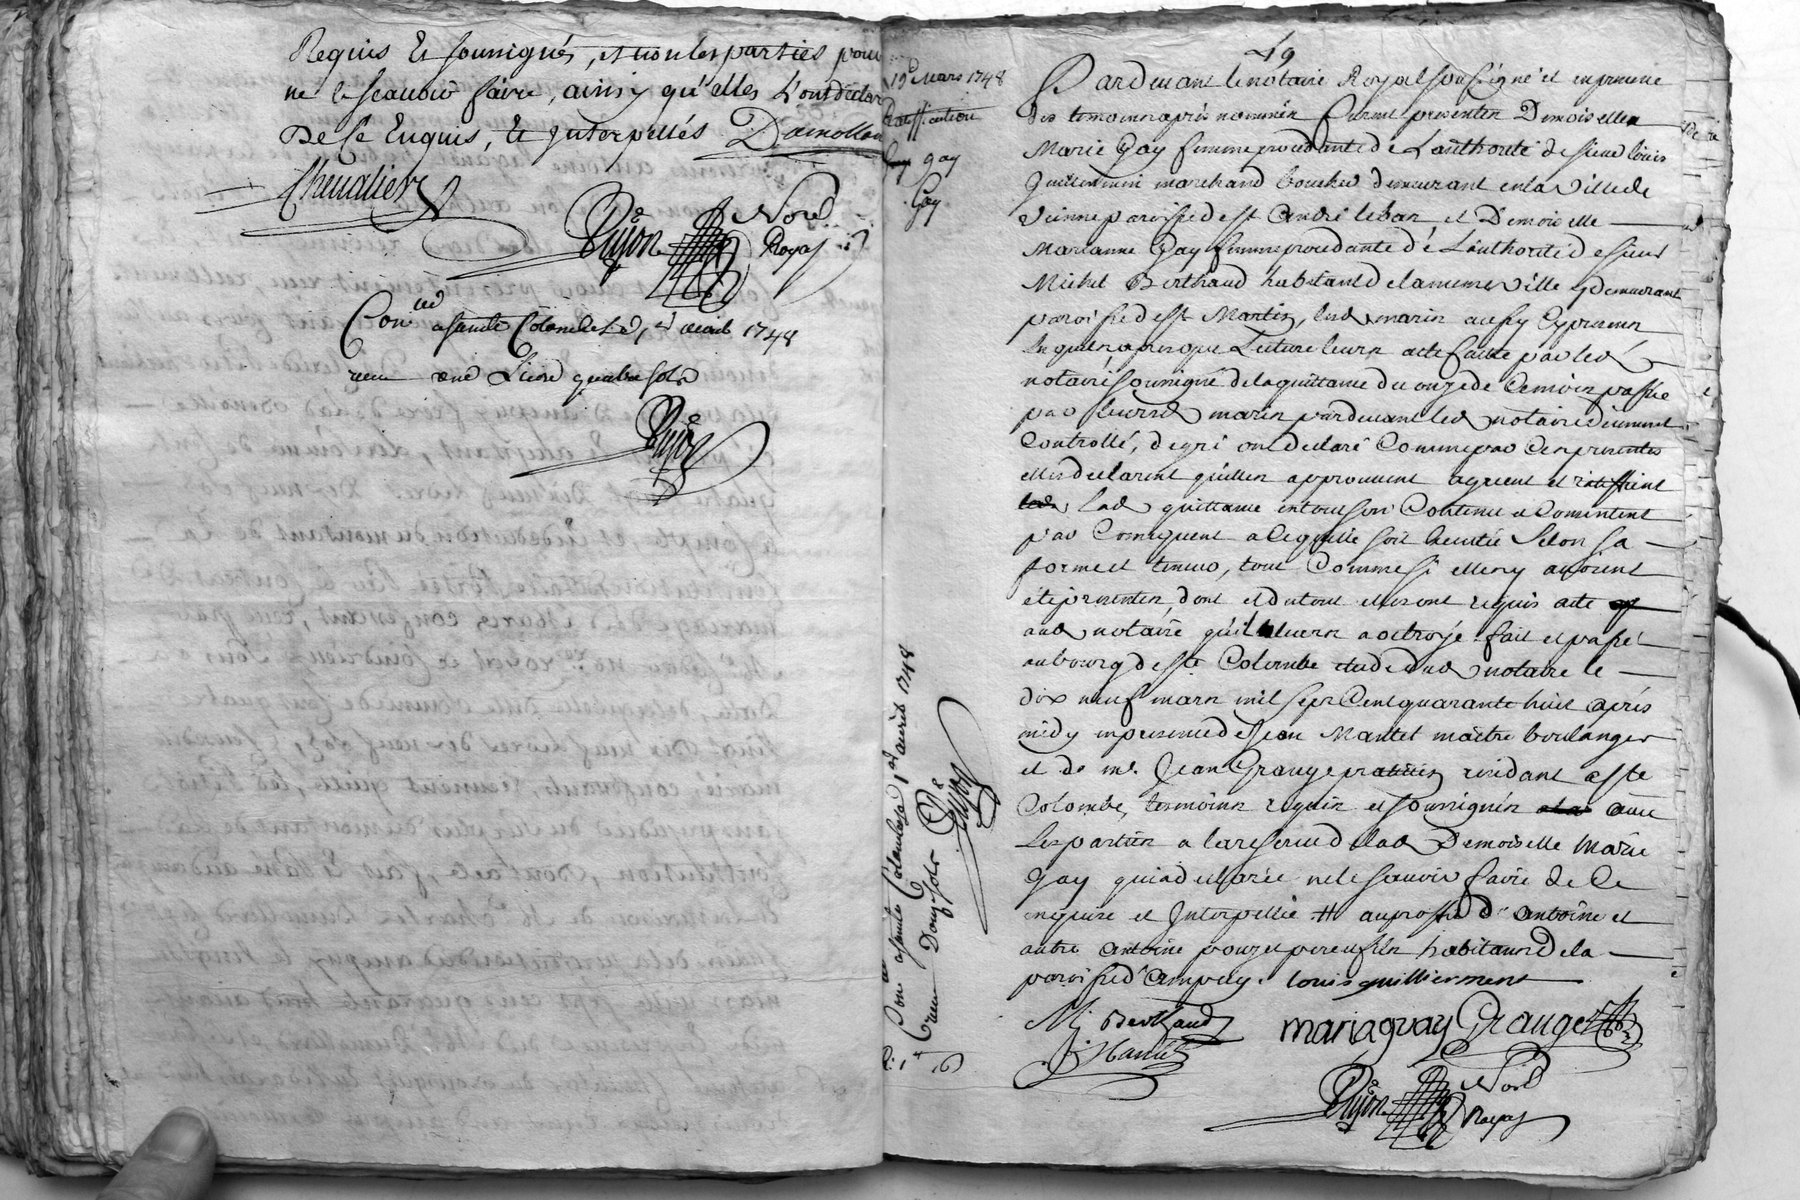 Requis et soussignés, et non les parties pour
ne le scavoir faire, ainsy qu'elles l'ont déclaré
De ce Enquis, et Interpellés Damollau
Chevalier
Dujon Nore
Royal
Con.lé a sainte Colombe le 1er avril 1748
receu une Livre quatre sols
Dujon
19e Mars 1748
Rattification
gay
Gay
Con.lé a sainte Colombe le 1er avril 1748
receu Douze sols Dujon
49
Pardevant le notaire Royal soussigné et en presence
des temoins après nommés furent presentes Demoiselles
Marie Gay femme procedante de L'authorité de sieur louis
Guillermin marchand boucher demeurant en la ville de
vienne paroisse de st André le bas et Demoiselle
Marianne Gay femme procedante de L'authorité de sieur
Michel Berthaud habitant de la meme ville y demeurant
paroisse de st Martin, lesd maris aussy Cy presents
lesquelles apres que Lecture leurs a ete faitte par led
notaire soussigné de la quittance du onze de Ce mois passée
par leursd maris pardevant led notaire duement
Controllé, de gré ont declaré Comme par Ces presentes
elles declarent qu'elles approuvent agreent et ratiffient
lad quittance en tout son Contenu et Consentent
par Consequent a Ce qu'elle soit executée Selon sa
forme et teneur, tout Comme si elles y avoient
été presentes, dont et du tout elles ont requis acte
aud notaire qu'il leurs a octroyé fait et passé
au bourg de ste Colombe etude dud notaire le
dix neuf mars mil sept Cent quarante huit après
midy en presence de sieur Jean Mantel maitre boulanger
et de mr. Jean Grange praticien residant a ste
Colombe, temoins requis et soussignés avec
Les parties a la reserve de lad Demoiselle Marie
Gay qui a declarée ne le scavoir faire de Ce
enquise et Interpellée # au proffit d'antoine et
autre antoine pouzet pere et fils habitants de la
paroisse d'ampuy. louis guillierment
Mj Berthaud mariaguay Grange
J Mantel
Dujon Nore
Royal